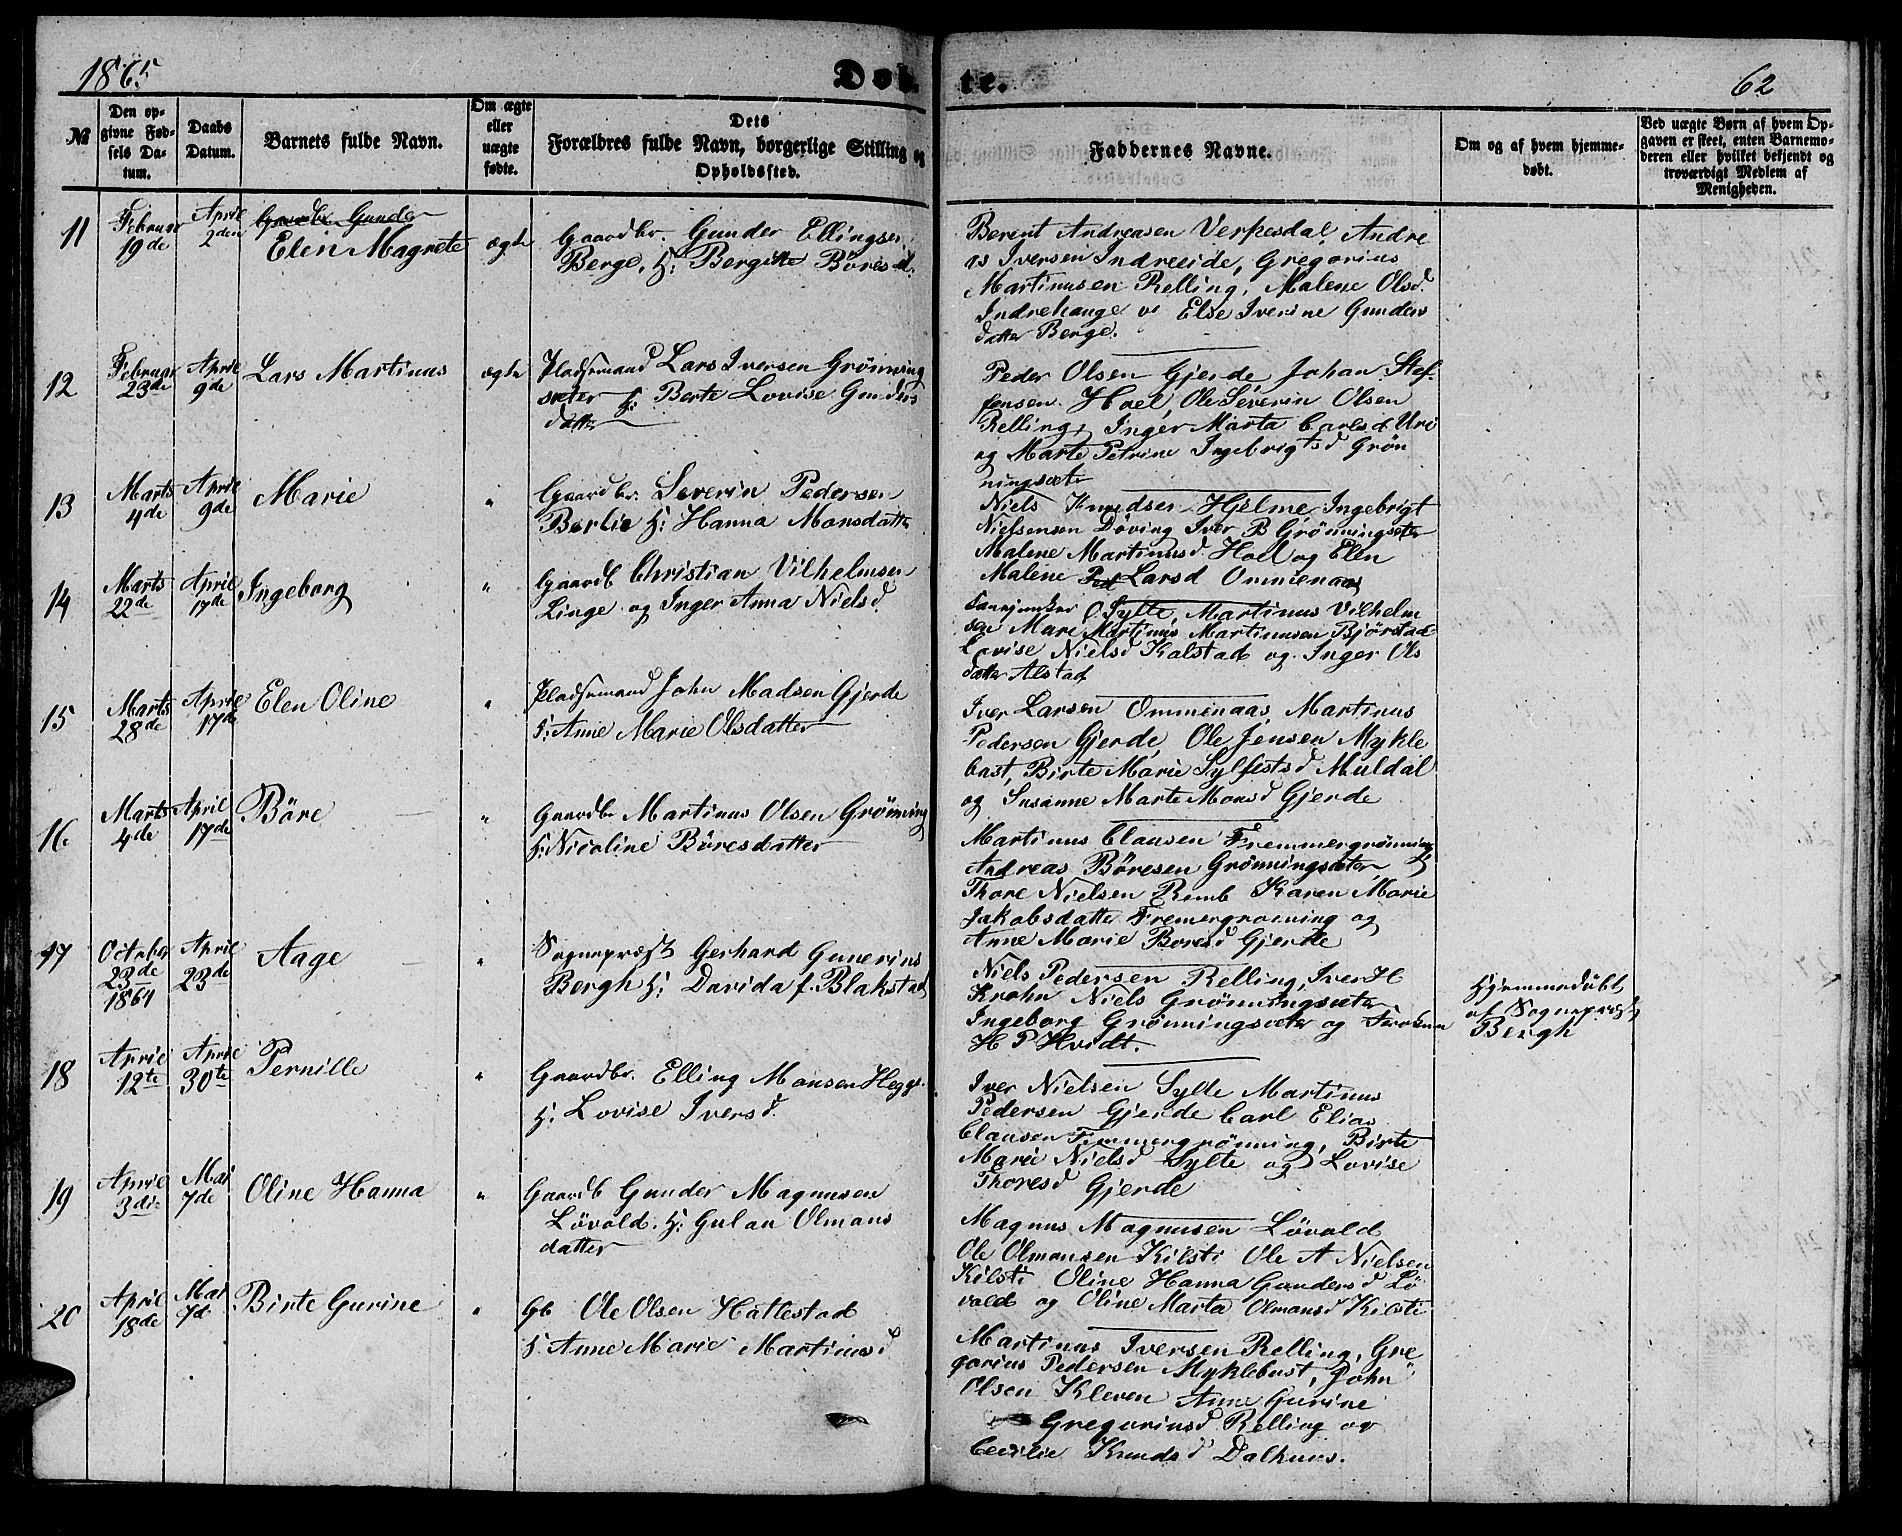 1865
Døb
te.
62
№
Den op-
givne Fød-
sels Da-
tum.
Daabs
Datum.
Barnets fulde Navn.
Om ægte
eller
uægte
fødte.
Dets
Forældres fulde Navn, borgerlige Stilling og
Opholdssted.
Faddernes Navne.
Om og af hvem hjemme-
døbt.
Ved uægte Børn af hvem Op-
gaven er skeet, enten Barnemo-
deren eller hvilket bekjendt og
troværdigt Medlem af
Menigheden.
11
Februar
19de
April
2den
Gaardbr. Gunder
Elen Magrete
ægte
Gaardbr. Gunder Ellingsen
Berge, H: Bergitte Böresd.
Berent Andreasen Verpesdal, Andre
as Iversen Indreeide, Gregorius
Martinusen Relling, Malene Olsd.
Indrehauge og Else Iverine Gunders
datter Berge.
12
Februar
23de
April
9de
Lars Martinus
ægte
Pladsmand Lars Iversen Grönning
sæter H: Berte Lovise Gunders
datter
Peder Olsen Gjerde, Johan Stef-
fensen Hoel, Ole Severin Olsen
Relling, Inger Marta Carlsd Uri
og Marte Petrine Ingebrigtsd Grön
ningsæter
13
Marts
4de
April
9de
Marie
"
Gaardbr. Severin Pedersen
Berlie H: Hanna Monsdatter
Niels Knudsen Hjelme, Ingebrigt
Nielsensen Döving Iver P Grönningsæter
Malene Martinusd Hoel og Elen
Malene Ped Larsd Ommenaas
14
Marts
22de
April
17de
Ingeborg
"
Gaardb Christian Vilhelmsen
Linge og Inger Anna Nielsd
O. Sylte, Martinus Vilhelm
sen Mari Martinus Martinusen Bjørstad
Lovise Nielsd Kalstad og Inger Ols
datter Alstad
15
Marts
28de
April
17de
Elen Oline
"
Pladsmand John Madsen Gjerde
H: Anne Marie Olsdatter
Iver Larsen Ommenaas, Martinus
Pedersen Gjerde, Ole Jensen Mykle
bast, Birte Marie Sylfestsd Muldal
og Susanne Marte Monsd Gjerde
16
Marts
4de
April
17de
Böre
"
Gaardbr Martinus Olsen Grönning
H: Nicoline Böresdatter
Martinus Clausen Fremmergrönning
Andreas Böresen Grönningsæter
Thore Nielsen Remb Karen Marie
Jakobsdatter Fremergroening og
Anne Marie Boresd Gjerde
17
October
23de
1864
April
23de
Aage
"
Sognepræst Gerhard Gunerius
Bergh H: Davida f. Blakstad
Niels Pedersen Relling, Iver H
Krohn Niels Grönningsæter
Ingeborg Grönningsæter og Froken
H P Hvidt.
Hjemmedöbt
af Sognepræst
Bergh
18
April
12te
April
30te
Pernille
"
Gaardbr. Elling Monsen Hegge
H: Lovise Iversd.
Iver Nielsen Sylte Martinus
Pedersen Gjerde Carl Elias
Clausen Fremmergrönning, Birte
Marie Nielsd Sylte og Lovise
Thoresd Gjerde
19
April
3die
Mai
7de
Oline Hanna
"
Gaardb Gunder Magnusen
Lövold, H: Gulan Olmans
datter
Magnus Magnusen Lövold
Ole Olmansen Kilsti Ole A Nielsen
Kilsti Oline Hanna Gundersd Lö
vold og Oline Marta Olmansd Kilsti
20
April
18de
Mai
7de
Birte Gurine
"
Gb Ole Olsen Hattestad
H. Anne Marie Martinusd
Martinus Iversen Relling, Gre
gorius Pedersen Myklebust, John
Olsen Kleven Anne Gurine
Gregoriusd Relling og
Cecilie Knudsd Dalhuus.